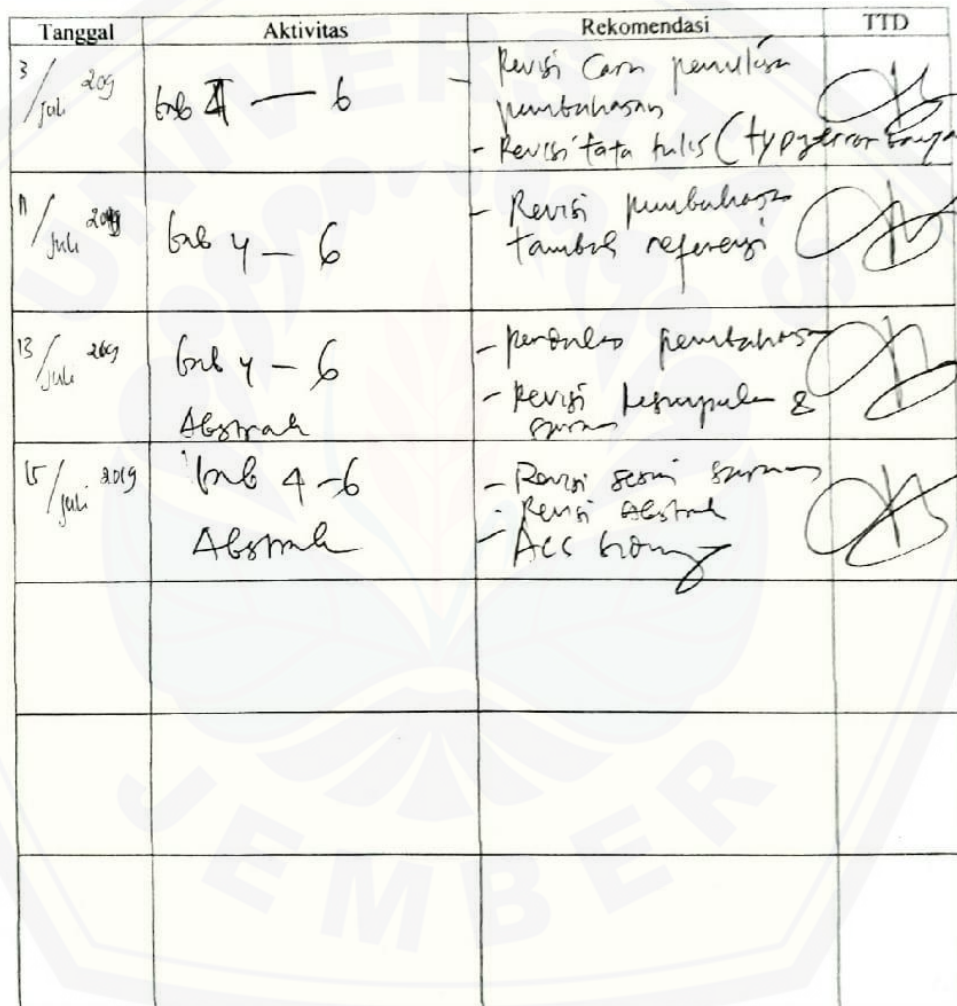 Tanggal Aktivitas Rekomendasi TTD
3/Juli 209 bab 4 — 6 - Revisi Cara penulisan
pembahasan
- Revisi tata tulis (typgerror banya
11/Juli 2019 bab 4 — 6 - Revisi pembahasan
tambah referensi
13/Juli 2019 bab 4 — 6 - pembahasan
Abstrak - Revisi kesimpulan &
saran
15/Juli 2019 bab 4 - 6 - Revisi sesuai saran
Abstrak - Revisi Abstrak
- Acc
UNIVERSITAS
JEMBER